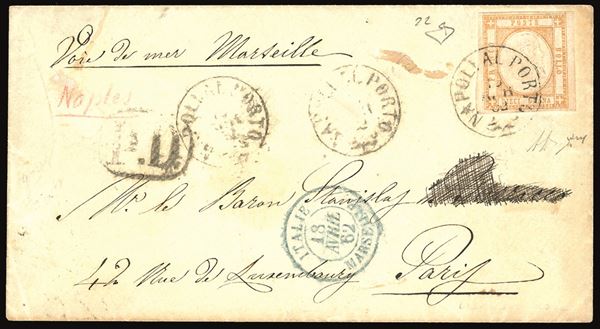 22
Voie de mer Marseille
Naples
POSTE
BOLLO
DIECI GRANA
NAPOLI AL PORTO
NAPOLI AL PORTO
NAPOLI AL PORTO
P.D.
Mr. le Baron Stanislas
ITALIE
18
AVRIL
62
MARSEILLE
42 Rue de Luxembourg Paris